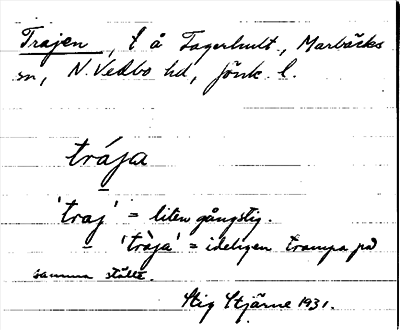 Trajen, t å Fagerhult, Marbäcks
sn, N. Vedbo hd, Jönk. l.
trája
'traj' = liten gångstig.
– 'tràja' = ideligen trampa på
samma ställe.
Stig Stjärne 1931.